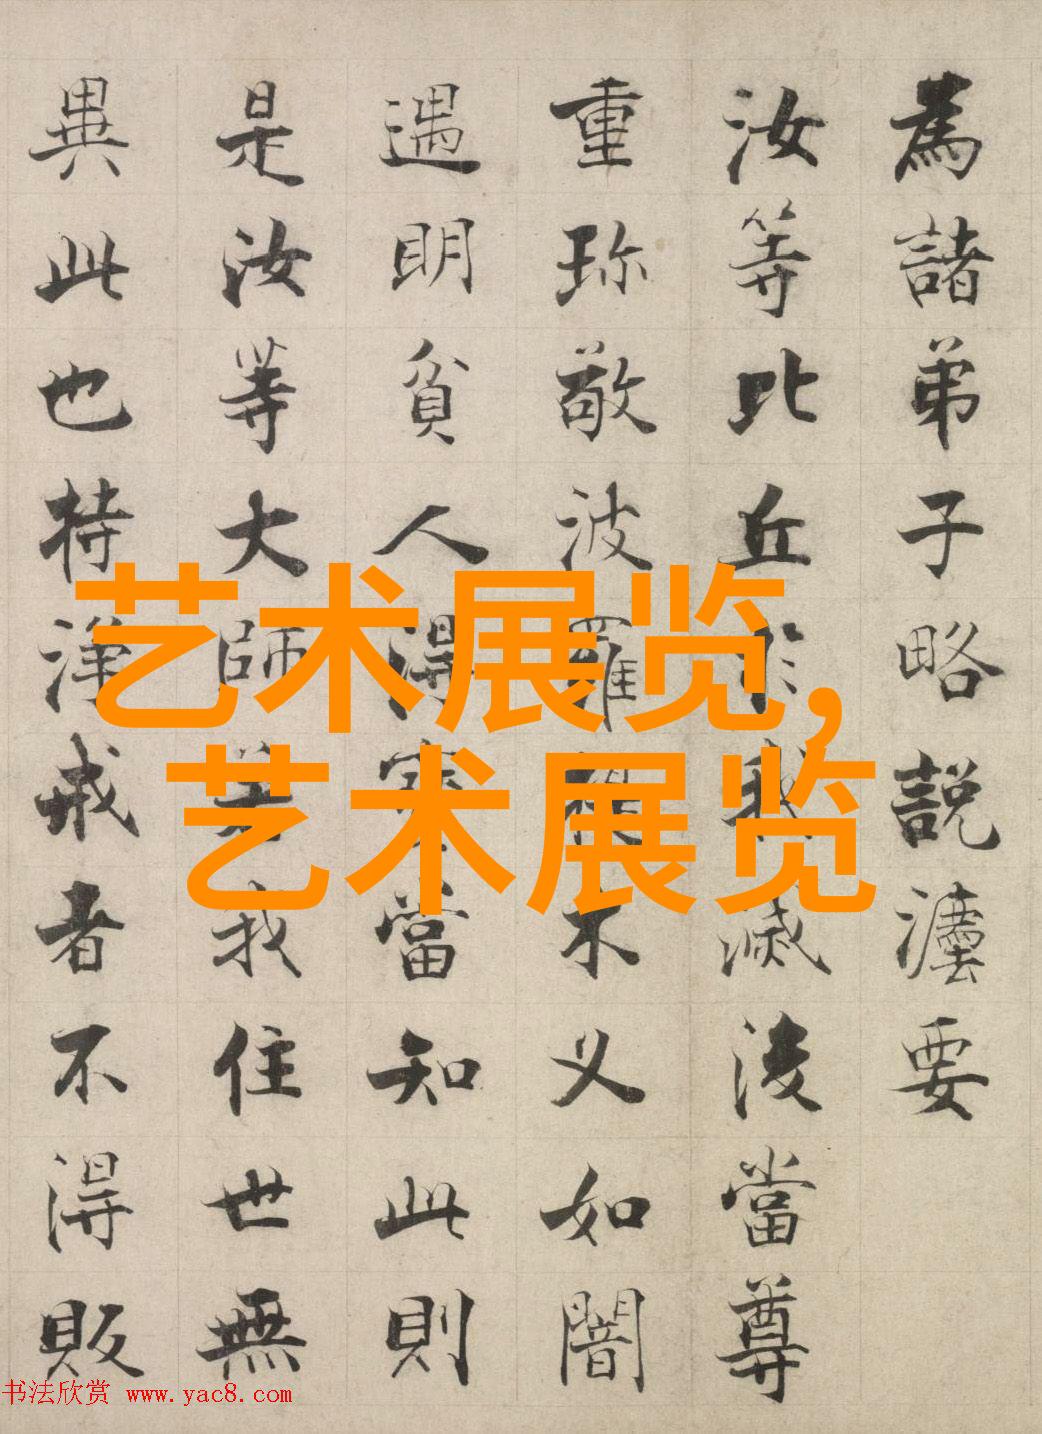 為諸弟子略說灋要
汝等比丘於我滅後當尊
重珎敬波羅提木叉如闇
遇明貧人得寶當知此則
是汝等大師若我住世無
異此也持淨戒者不得販
艺术展览,
艺术展览
书法欣赏 www.yac8.com